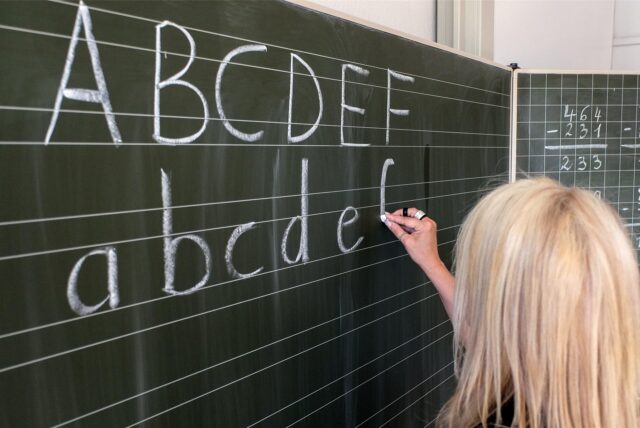 ABCDEF
abcde
464
- 231
233